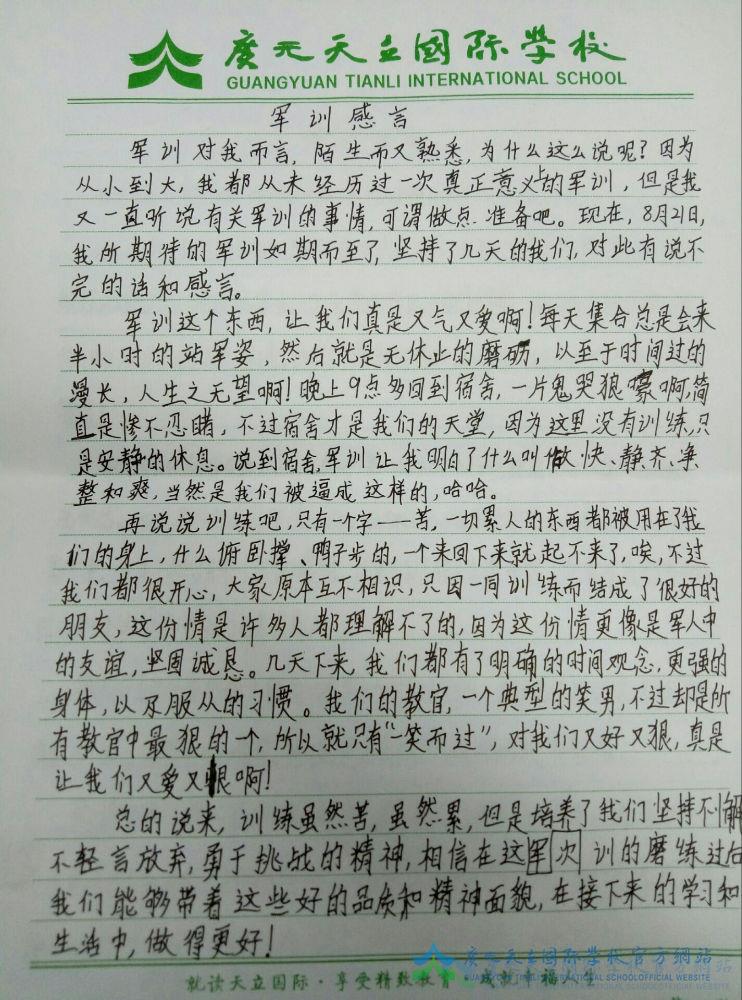 廣元天立國际學校
GUANGYUAN TIANLI INTERNATIONAL SCHOOL
军训感言
军训对我而言,陌生而又熟悉,为什么这么说呢?因为
从小到大,我都从未经历过一次真正意义上的军训,但是我
又一直听说有关军训的事情,可谓做点准备吧。现在,8月21日,
我所期待的军训如期而至了,坚持了几天的我们,对此有说不
完的话和感言。
军训这个东西,让我们真是又气又爱啊!每天集合总是会来
半小时的站军姿,然后就是无休止的磨砺,以至于时间过的
漫长,人生之无望啊!晚上9点多回到宿舍,一片鬼哭狼嚎啊,简
直是惨不忍睹,不过宿舍才是我们的天堂,因为这里没有训练,只
是安静的休息。说到宿舍,军训让我明白了什么叫做快、静、齐、净、
整和爽,当然是我们被逼成这样的,哈哈。
再说说训练吧,只有一个字——苦,一切累人的东西都被用在了我
们的身上,什么俯卧撑、鸭子步的,一个来回下来就起不来了,唉,不过
我们都很开心,大家原本互不相识,只因一同训练而结成了很好的
朋友,这份情是许多人都理解不了的,因为这份情更像是军人中
的友谊,坚固诚恳。几天下来,我们都有了明确的时间观念,更强的
身体,以及服从的习惯。我们的教官,一个典型的笑男,不过却是所
有教官中最狠的一个,所以就只有“一笑而过”,对我们又好又狠,真是
让我们又爱又恨啊!
总的说来,训练虽然苦,虽然累,但是培养了我们坚持不懈
不轻言放弃,勇于挑战的精神,相信在这军次训的磨练过后
我们能够带着这些好的品质和精神面貌,在接下来的学习和
生活中,做得更好!
廣元天立國际學校官方網站
GUANGYUAN TIANLI INTERNATIONAL SCHOOLOFFICIAL WEBSITE
就读天立国际·享受精致教育 成就幸福人生